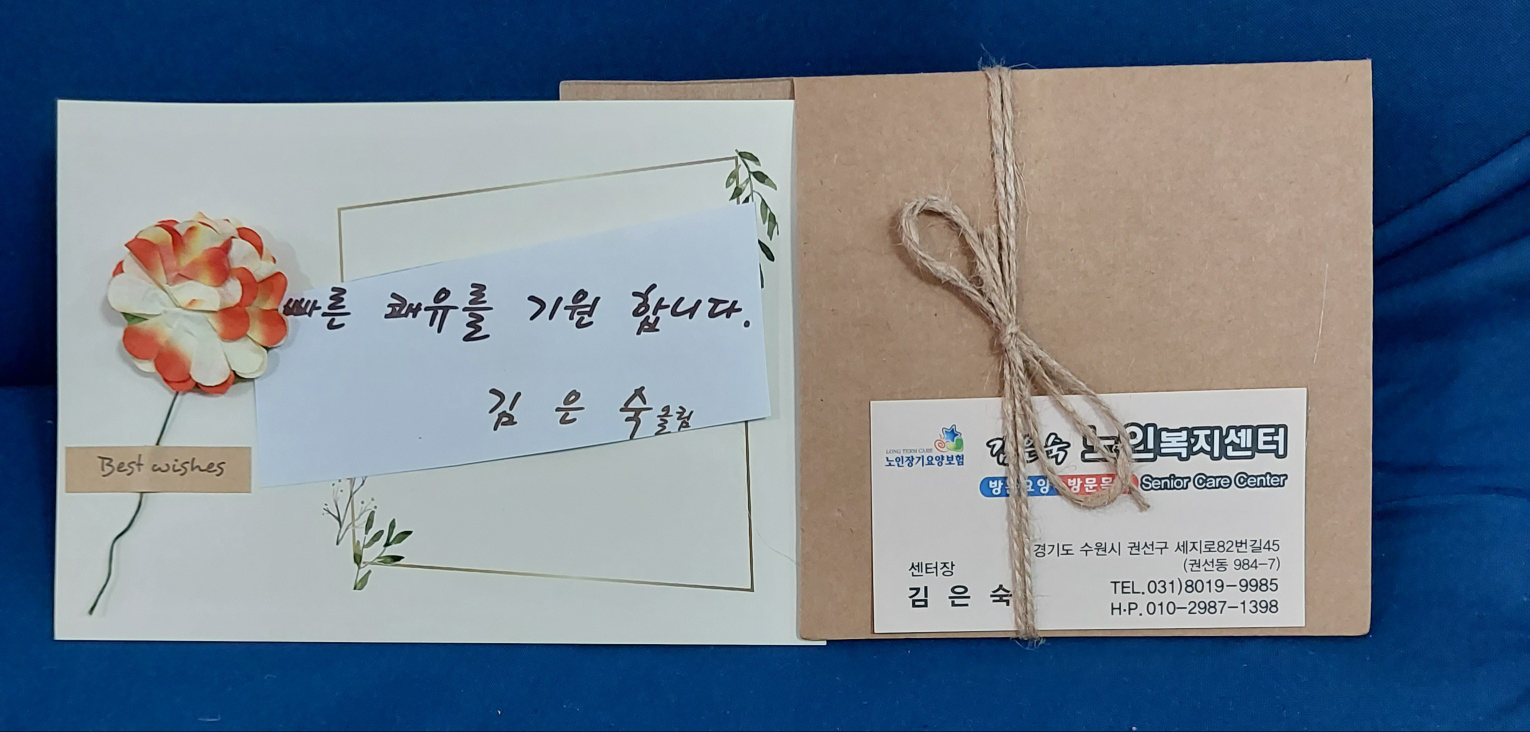 빠른 쾌유를 기원 합니다.
김 은 숙 올림
Best wishes
LONG TERM CARE
노인장기요양보험
김은숙 노인복지센터
방문요양 방문목욕 Senior Care Center
경기도 수원시 권선구 세지로82번길45
(권선동 984-7)
센터장
김 은 숙
TEL.031)8019-9985
H·P. 010-2987-1398